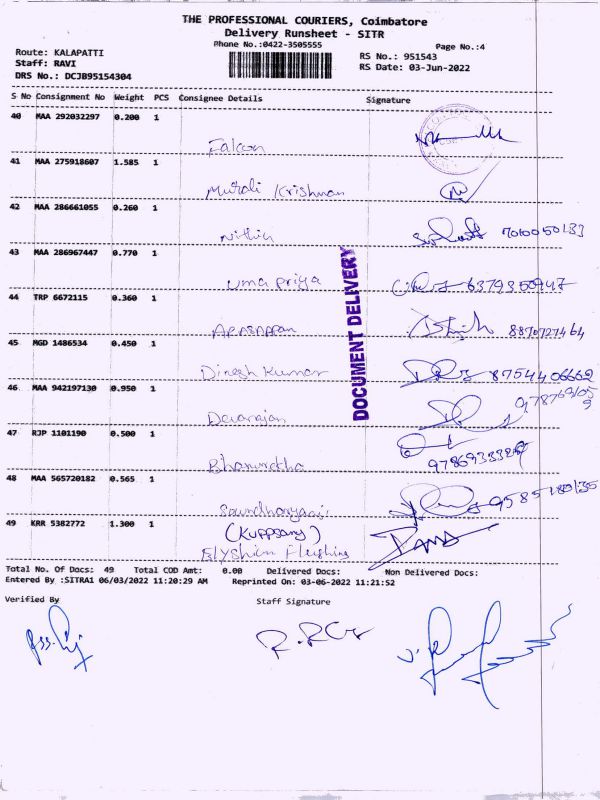 THE PROFESSIONAL COURIERS, Coimbatore
Delivery Runsheet - SITR
Phone No.:0422-3505555
Page No.:4
Route: KALAPATTI
Staff: RAVI
DRS No.: DCJB95154304
RS No.: 951543
RS Date: 03-Jun-2022
S No Consignment No Weight PCS Consignee Details Signature
40 MAA 292032297 0.200 1
Falcon
41 MAA 275918607 1.585 1
Murali Krishnan
42 MAA 286661055 0.260 1
Nithin 7010050133
43 MAA 286967447 0.770 1
Uma priya 6379350947
44 TRP 6672115 0.360 1
8870727464
45 MGD 1486534 0.450 1
Dinesh Kumar 8754406662
46 MAA 942197130 0.950 1
Devarajan
47 RJP 1101190 0.500 1
48 MAA 565720182 0.565 1
49 KRR 5382772 1.300 1
DOCUMENT DELIVERY
Total No. Of Docs: 49 Total COD Amt: 0.00 Delivered Docs: Non Delivered Docs:
Entered By :SITRA1 06/03/2022 11:20:29 AM Reprinted On: 03-06-2022 11:21:52
Verified By Staff Signature